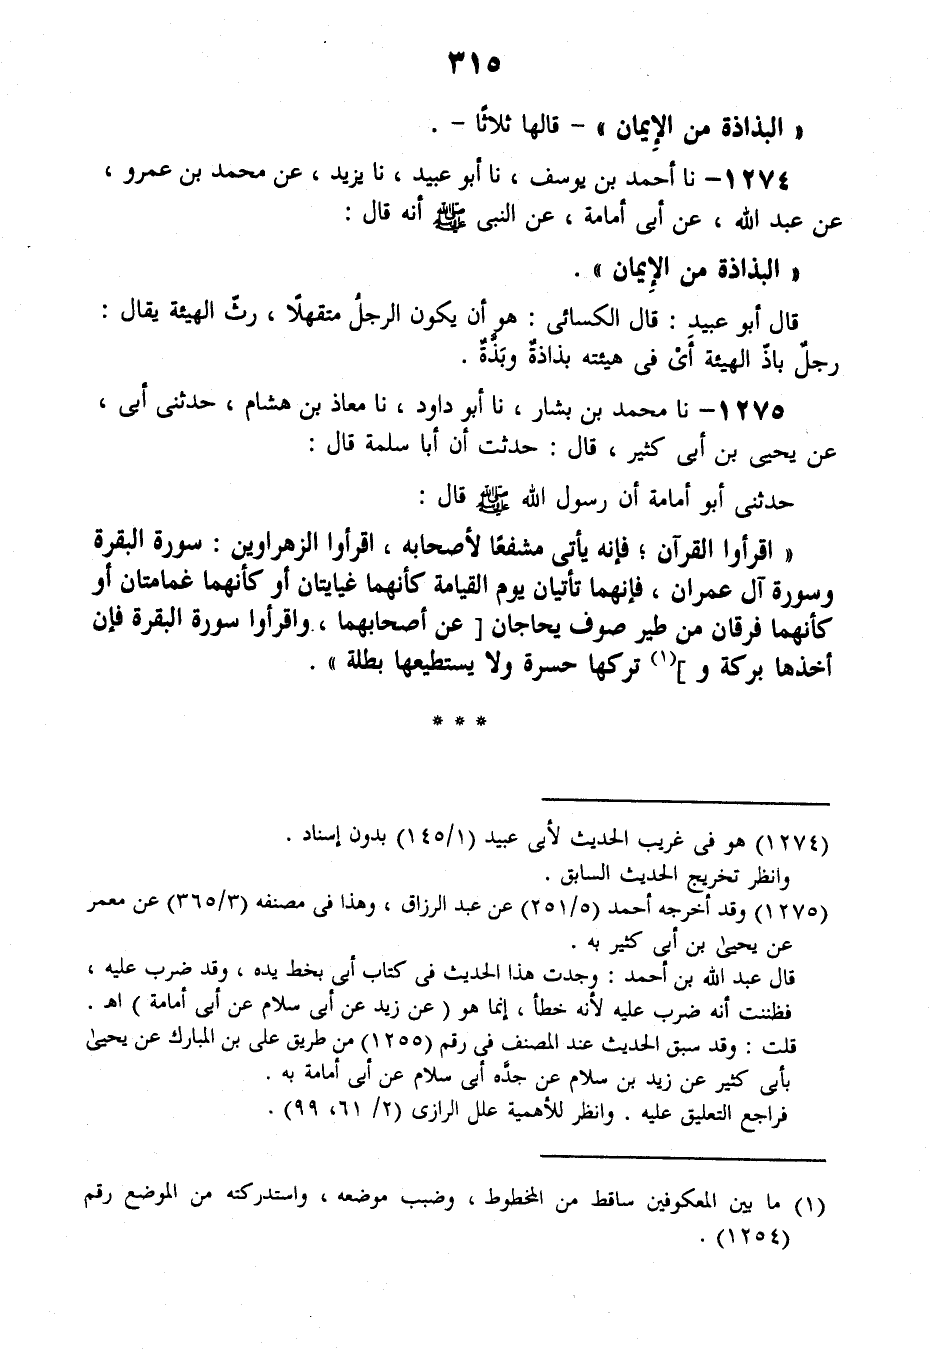 ٣١٥
« البذاذة من الإيمان » – قالها ثلاثًا – .
١٢٧٤– نا أحمد بن يوسف ، نا أبو عبيد ، نا يزيد ، عن محمد بن عمرو ،
عن عبد الله ، عن أبى أمامة ، عن النبى ﷺ أنه قال :
« البذاذة من الإيمان » .
قال أبو عبيد : قال الكسائى : هو أن يكون الرجلُ متقهلًا ، رثّ الهيئة يقال :
رجلٌ باذّ الهيئة أَىْ فى هيئته بذاذةٌ وبَذَّةٌ .
١٢٧٥– نا محمد بن بشار ، نا أبو داود ، نا معاذ بن هشام ، حدثنى أبى ،
عن يحيى بن أبى كثير ، قال : حدثت أن أبا سلمة قال :
حدثنى أبو أمامة أن رسول الله ﷺ قال :
« اقرأوا القرآن ؛ فإنه يأتى مشفعًا لأصحابه ، اقرأوا الزهراوين : سورة البقرة
وسورة آل عمران ، فإنهما تأتيان يوم القيامة كأنهما غيايتان أو كأنهما غمامتان أو
كأنهما فرقان من طير صوف يحاجان [ عن أصحابهما ، واقرأوا سورة البقرة فإن
أخذها بركة و ](١) تركها حسرة ولا يستطيعها بطلة » .
* * *
(١٢٧٤) هو فى غريب الحديث لأبى عبيد (١٤٥/١) بدون إسناد .
وانظر تخريج الحديث السابق .
(١٢٧٥) وقد أخرجه أحمد (٢٥١/٥) عن عبد الرزاق ، وهذا فى مصنفه (٣٦٥/٣) عن معمر
عن يحيىٰ بن أبى كثير به .
قال عبد الله بن أحمد : وجدت هذا الحديث فى كتاب أبى بخط يده ، وقد ضرب عليه ،
فظننت أنه ضرب عليه لأنه خطأ ، إنما هو ( عن زيد عن أبى سلام عن أبى أمامة ) اهـ .
قلت : وقد سبق الحديث عند المصنف فى رقم (١٢٥٥) من طريق على بن المبارك عن يحيىٰ
بأبى كثير عن زيد بن سلام عن جدَّه أبى سلام عن أبى أمامة به .
فراجع التعليق عليه . وانظر للأهمية علل الرازى (٢/ ٦١، ٩٩) .
(١) ما بين المعكوفين ساقط من المخطوط ، وضبب موضعه ، واستدركته من الموضع رقم
(١٢٥٤) .